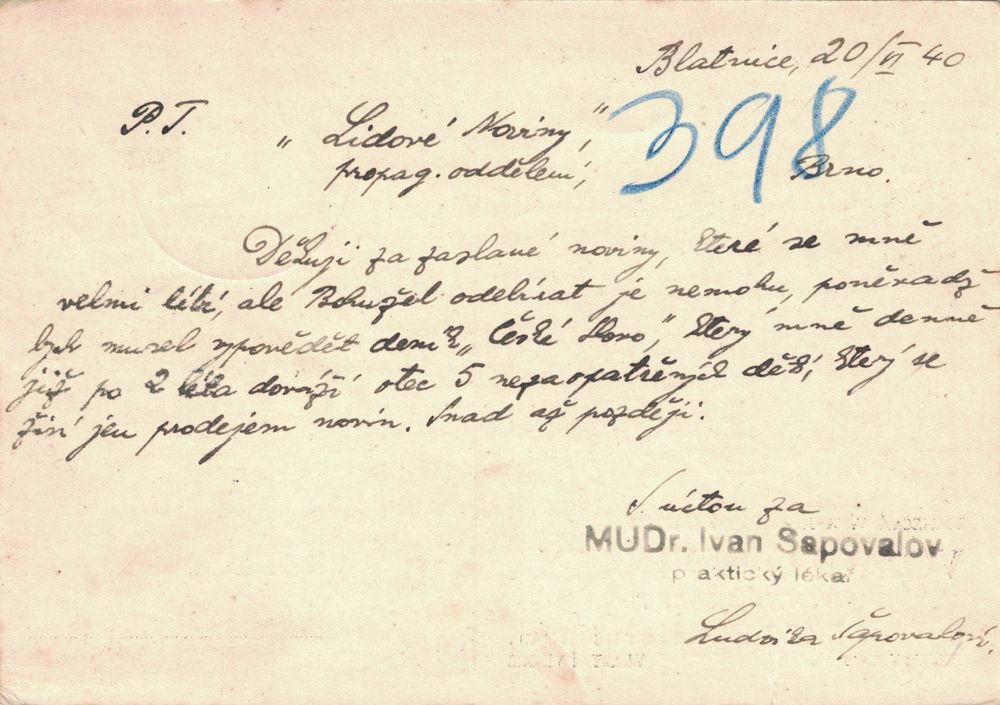 Blatnice, 20/VI 40
P.T. „Lidové Noviny,"
398
propag. oddělení, Brno.
Děkuji za zaslané noviny, které se mně
velmi líbí, ale Bohužel odebírat je nemohu, poněvadž
bych musel vypovědět deník „České slovo," který mně denně
již po 2 léta dováží otec 5 nezaopatřených dětí, který se
živí jen prodejem novin. Snad až později.
S úctou za
MUDr. Ivan Šapovalov
praktický lékař
Ludvika Šapovalová.